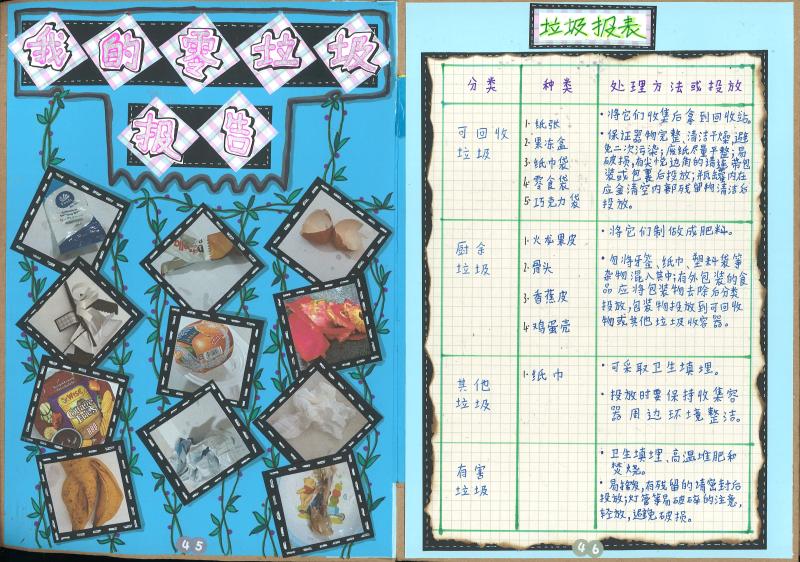 我的零垃圾
报告
45
垃圾报表
分类
种类
处理方法或投放
可回收
垃圾
1. 纸张
2. 果冻盒
3. 纸巾袋
4. 零食袋
5. 巧克力袋
·将它们收集后拿到回收站。
·保证器物完整、清洁干燥,避
免二次污染;废纸尽量平整;易
破损,有尖锐边角的请
装或包裹后投放;瓶罐内在
应金清空内部残留物清洁后
投放。
厨余
垃圾
1. 火龙果皮
2. 骨头
3. 香蕉皮
4. 鸡蛋壳
·将它们制做成肥料。
·勿将牙签、纸巾、塑料袋等
杂物混入其中;有外包装的食
品应将包装物去除后分类
投放,包装物投放到可回收
物或其他垃圾收容器。
其他
垃圾
1. 纸巾
·可采取卫生填埋。
·投放时要保持收集容
器周边环境整洁。
有害
垃圾
·卫生填埋、高温堆肥和
焚烧。
·易挥发,有残留的请密封后
投放;灯管等易破碎的注意,
轻放,避免破损。
46